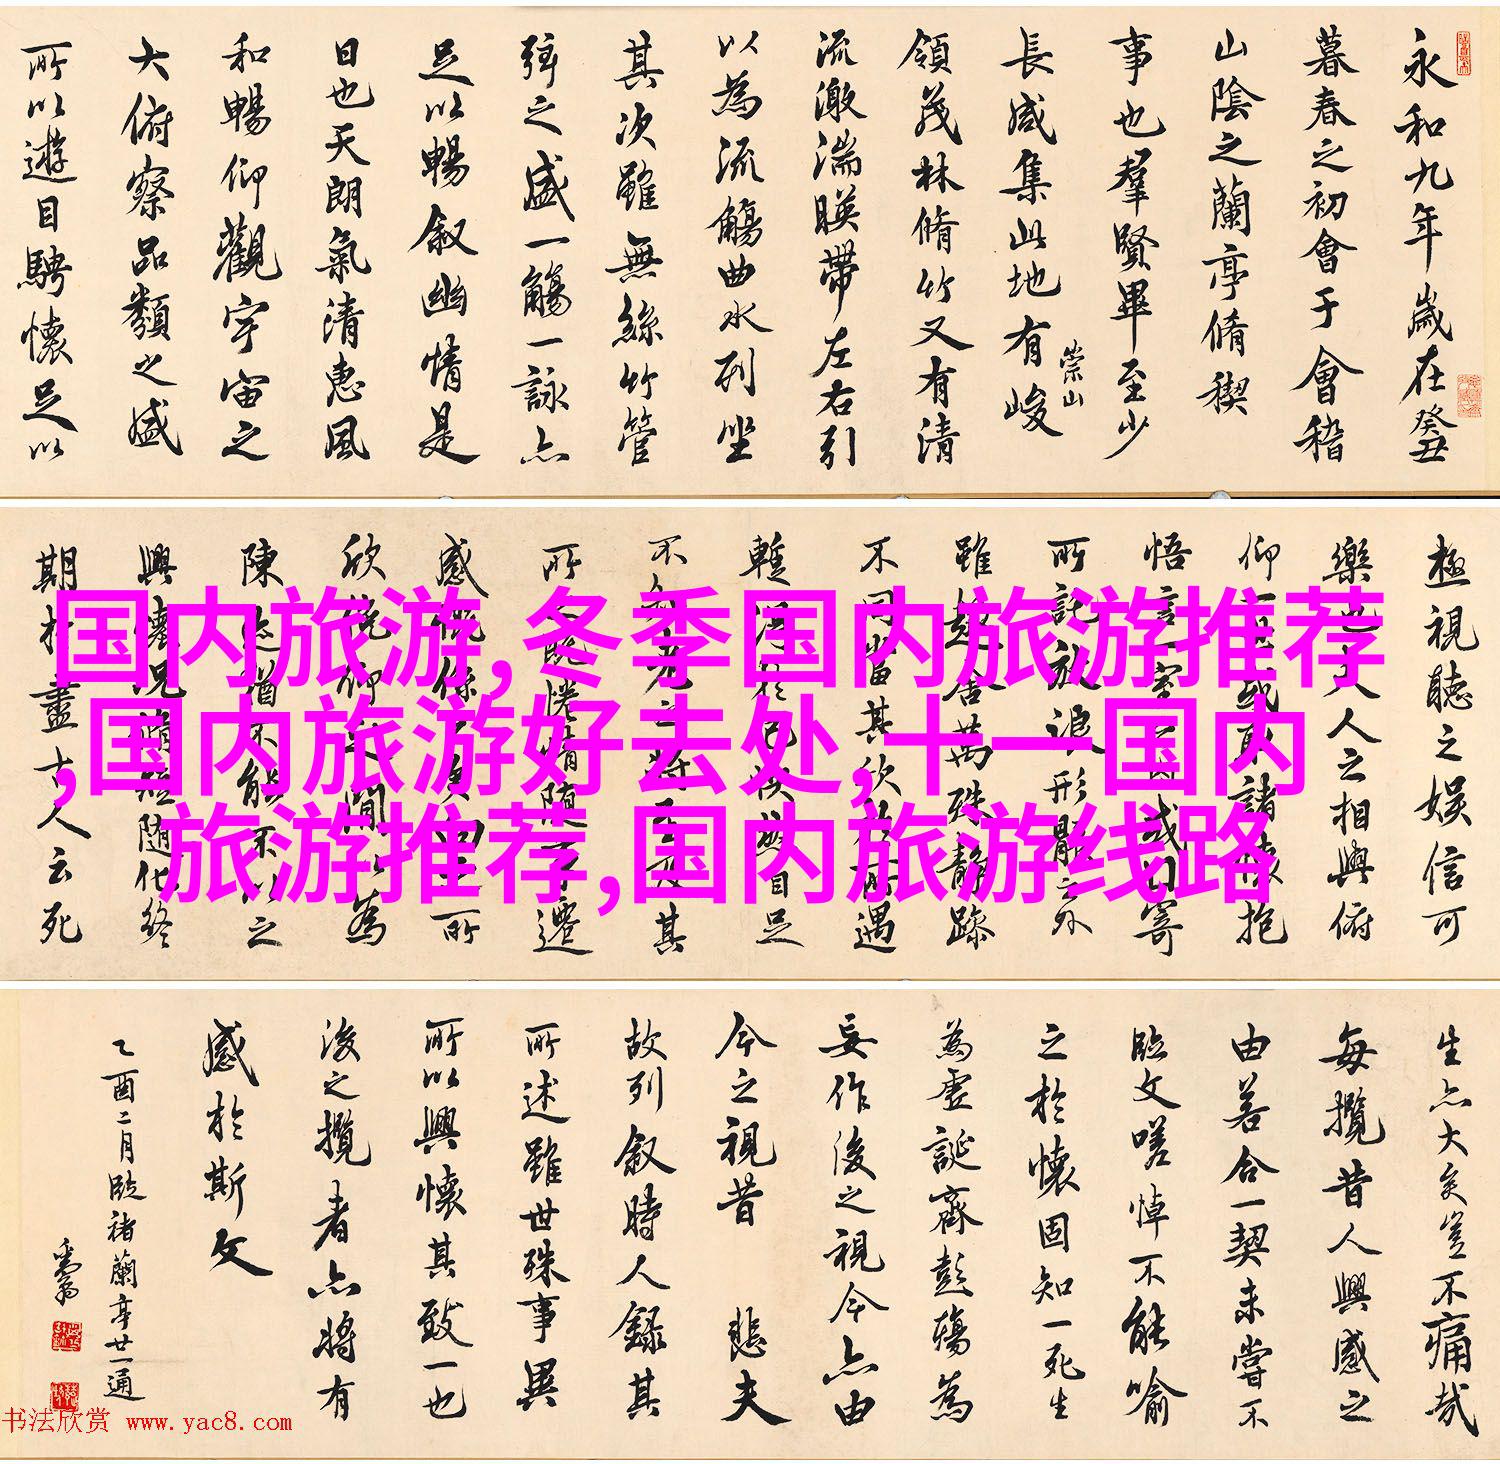 永和九年歲在癸丑
暮春之初會于會稽
山陰之蘭亭脩稧
事也羣賢畢至少
長咸集此地有峻
崇山
領茂林脩竹又有清
流激湍暎帶左右引
以為流觴曲水列坐
其次雖無絲竹管
弦之盛一觴一詠亦
足以暢叙幽情是
日也天朗氣清惠風
和暢仰觀宇宙之
大俯察品類之盛
所以遊目騁懷足以
極視聽之娛信可
樂也夫人之相與俯
仰一世或取諸懷抱
悟言一室之內或因寄
所託放浪形骸之外
雖趣舍萬殊靜躁
不同當其欣於所遇
暫得於己快然自足
不知老之將至及其
所之既惓情隨事遷
感慨係之矣向之所
欣俛仰之間以為
陳迹猶不能不以之
興懷況脩短隨化終
期於盡古人云死
国内旅游,冬季国内旅游推荐
,国内旅游好去处,十一国内
旅游推荐,国内旅游线路
生亦大矣豈不痛哉
每攬昔人興感之
由若合一契未嘗不
臨文嗟悼不能喻
之於懷固知一死生
為虛誕齊彭殤為
妄作後之視今亦由
今之視昔 悲夫
故列叙時人錄其
所述雖世殊事異
所以興懷其致一也
後之攬者亦將有
感於斯文
乙酉二月臨褚蘭亭廿一通
书法欣赏 www.yac8.com